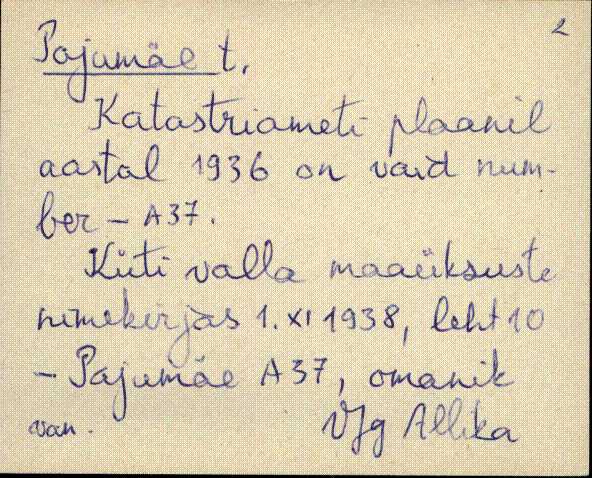 2
Pajumäe t.
Katastriameti plaanil
aastal 1936 on vaid num-
ber - A37.
Küti valla maaüksuste
nimekirjas 1. XI 1938, leht 10
- Pajumäe A37, omanik
van. VJg Allika